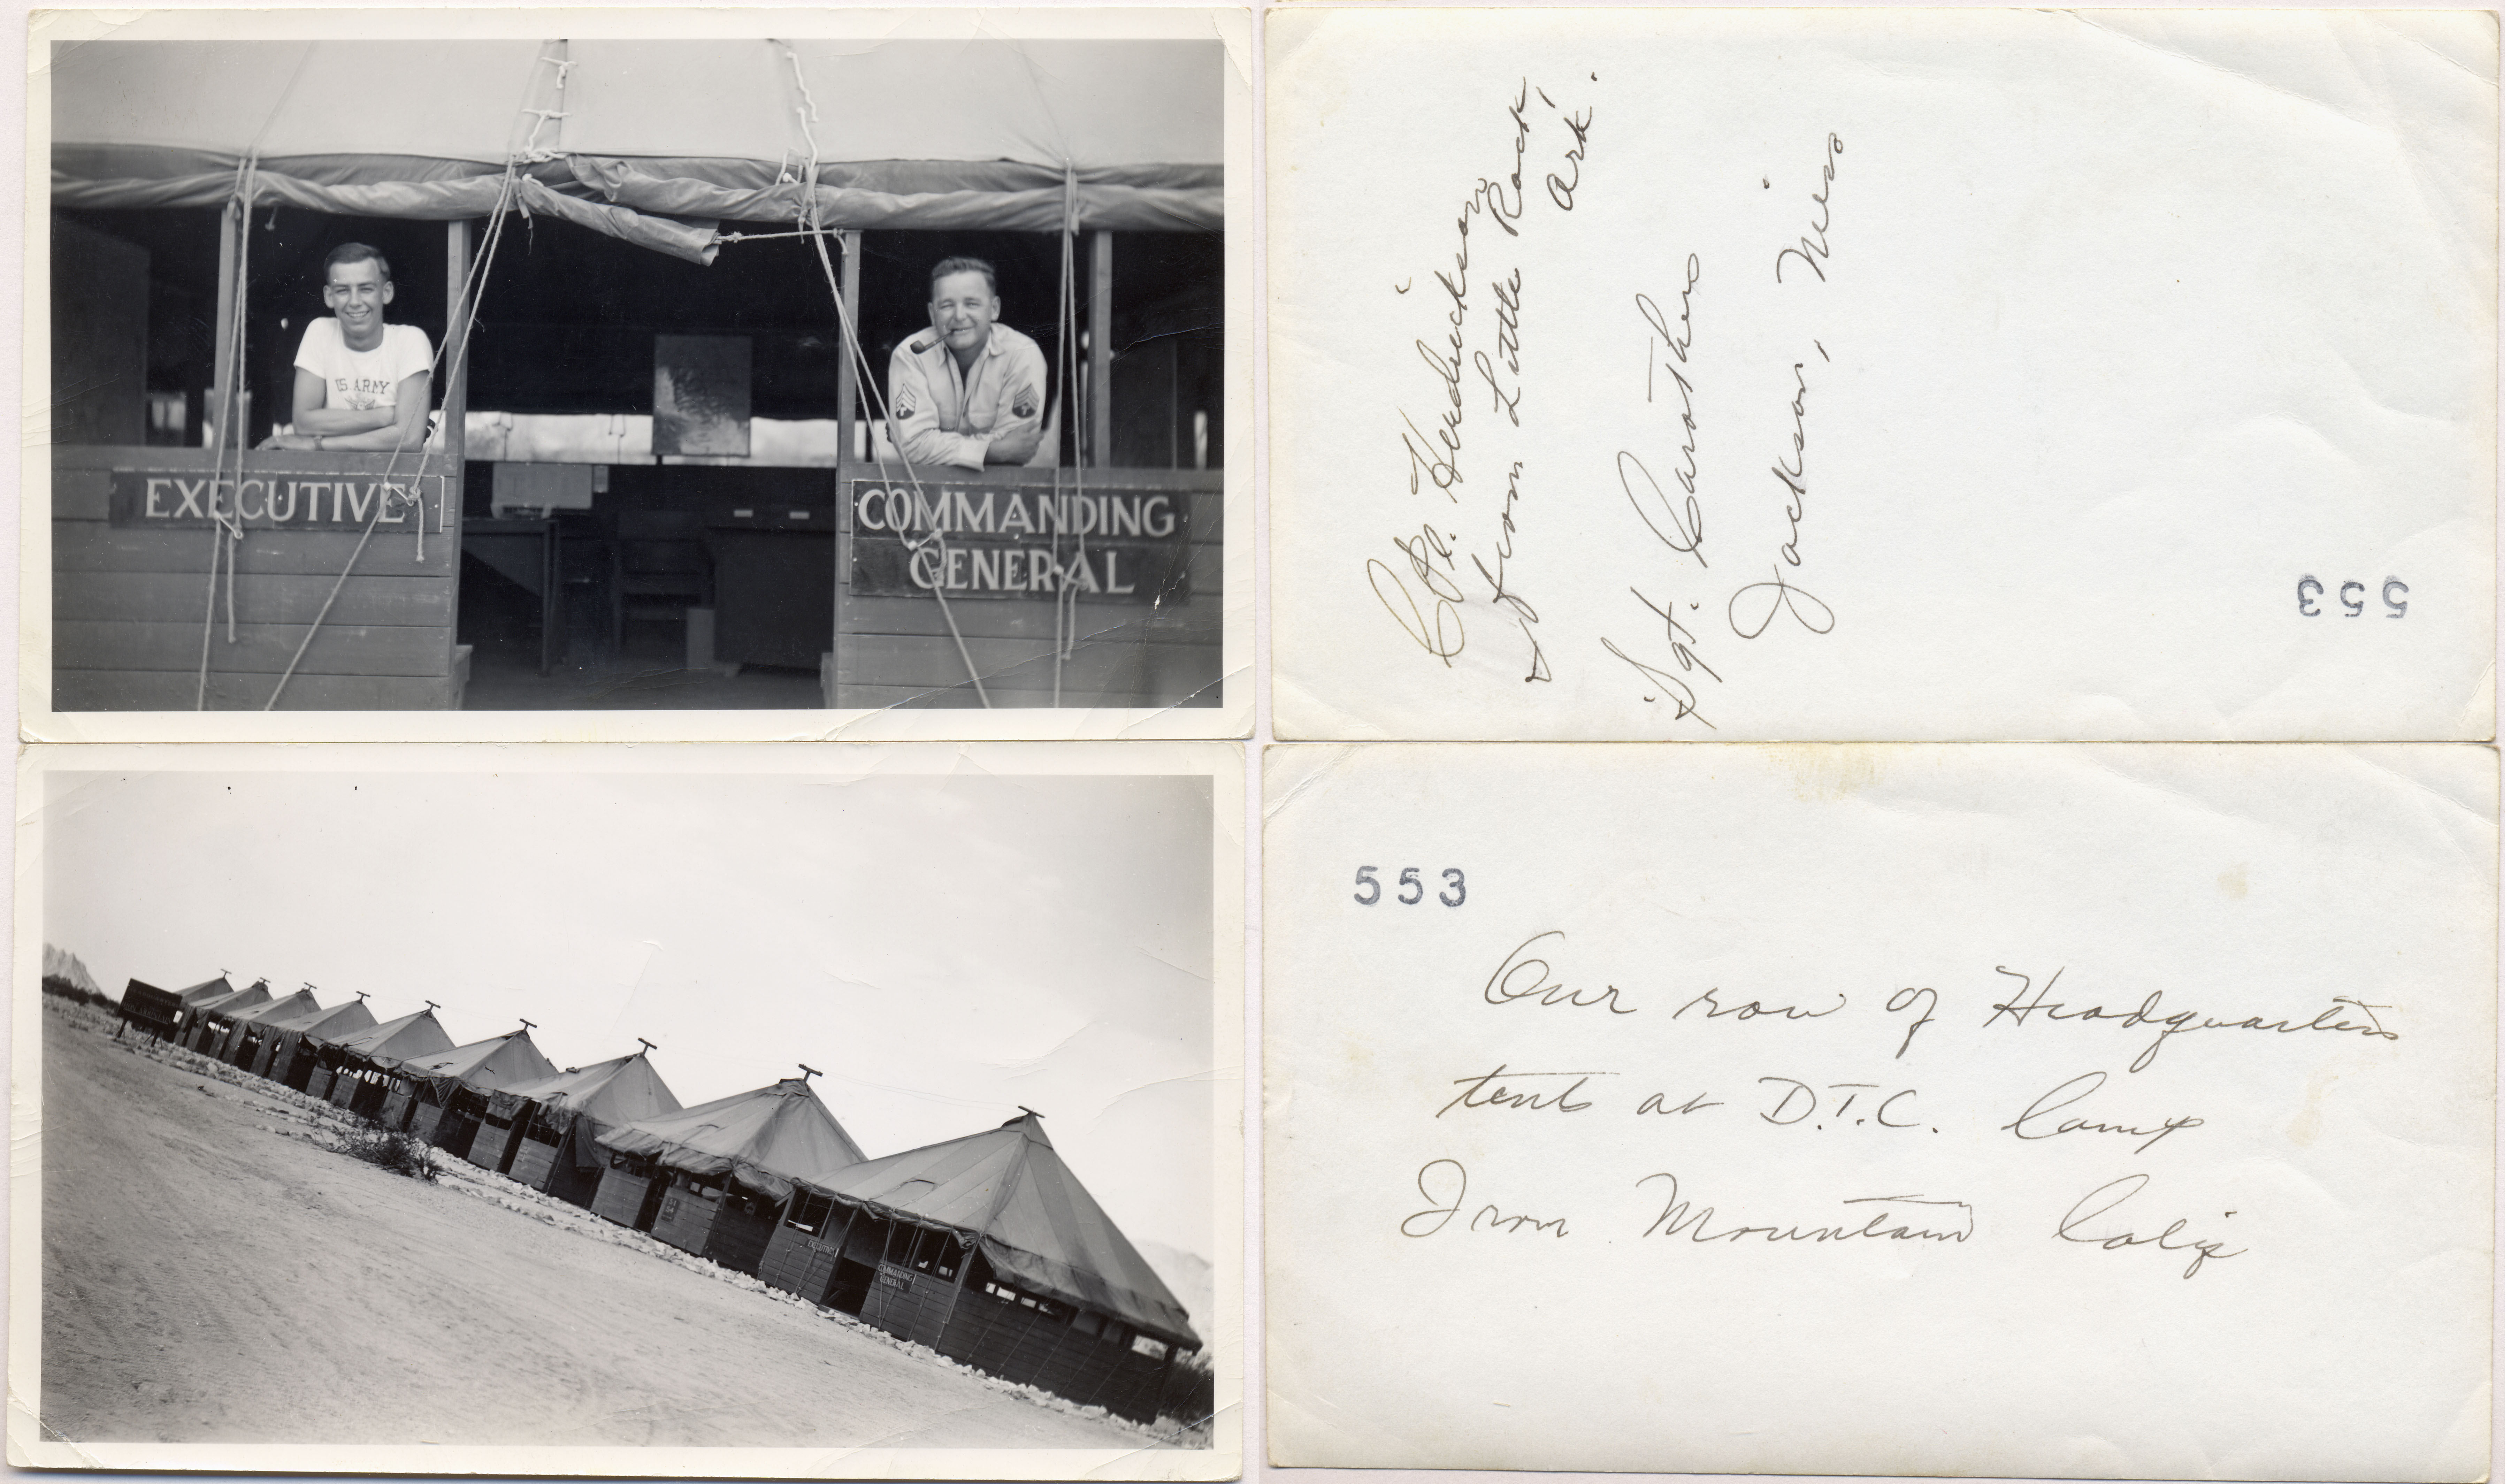 US ARMY
EXECUTIVE
COMMANDING
GENERAL
Cpl. Hendrickson
from Little Rock,
Ark.
Sgt. Carothers
Jackson, Miss
553
EXECUTIVE
COMMANDING
GENERAL
553
Our row of Headquarters
tents at D.T.C. Camp
Iron Mountain Calif